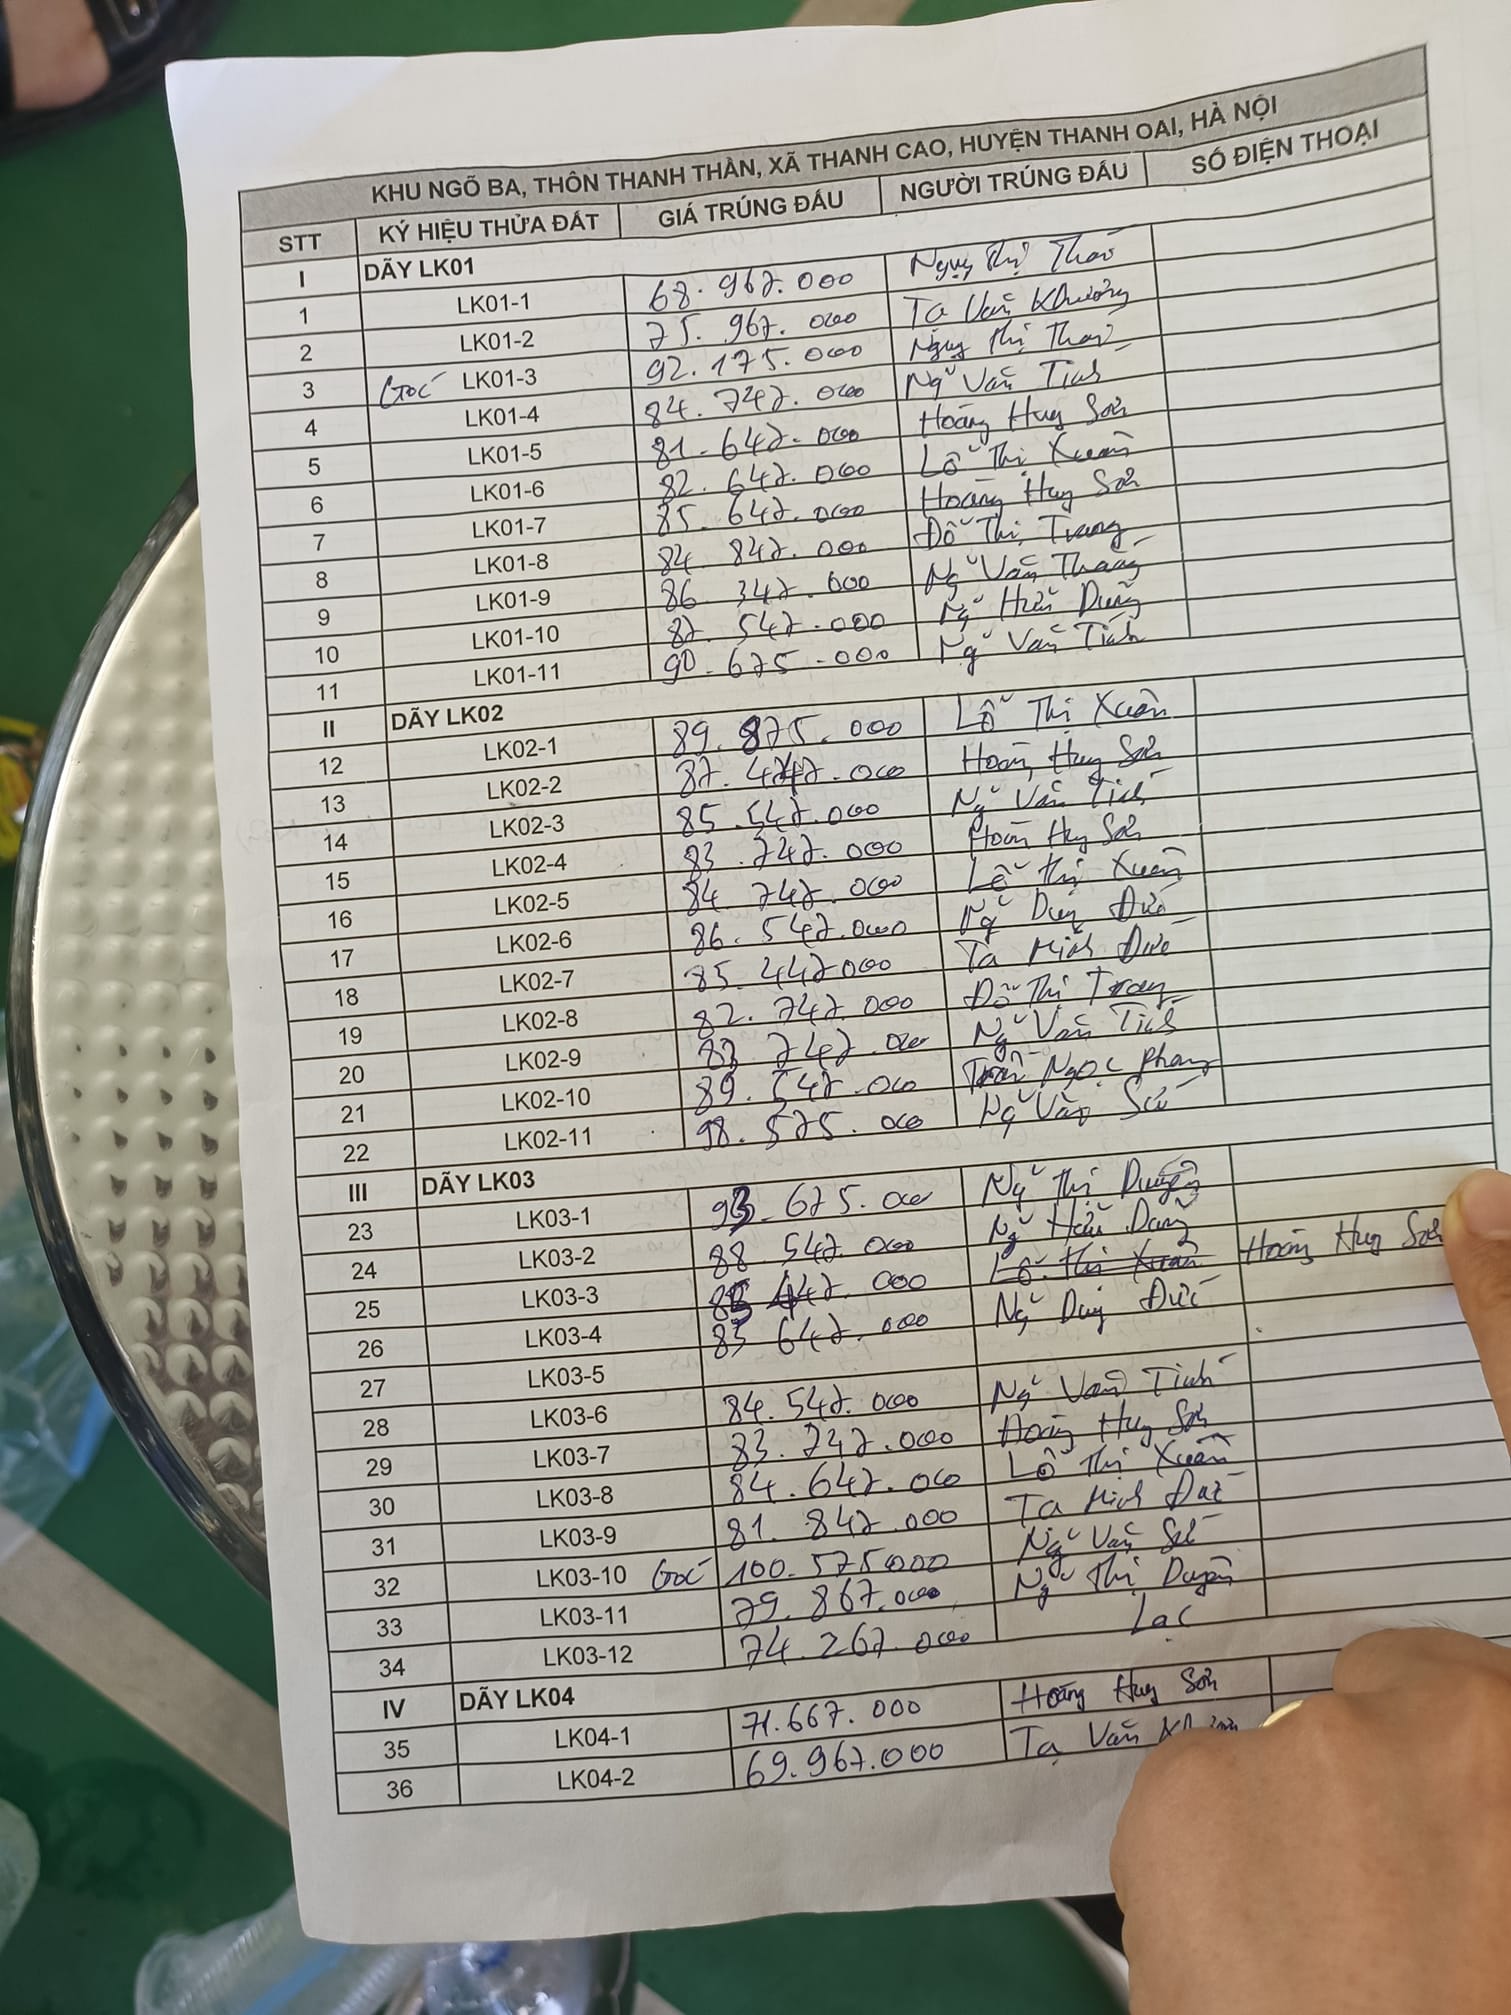 KHU NGÕ BA, THÔN THANH THẦN, XÃ THANH CAO, HUYỆN THANH OAI, HÀ NỘI
STT KÝ HIỆU THỬA ĐẤT GIÁ TRÚNG ĐẤU NGƯỜI TRÚNG ĐẤU SỐ ĐIỆN THOẠI
I DÃY LK01
1 LK01-1 68.967.000 Ngụy Thị Thao
2 LK01-2 75.967.000 Tạ Văn Khương
3 Góc LK01-3 92.175.000 Ngụy Thị Thao
4 LK01-4 84.747.000 Ng~ Văn Tình
5 LK01-5 81.647.000 Hoàng Huy Sơn
6 LK01-6 82.647.000 Lỗ Thị Xuân
7 LK01-7 85.647.000 Hoàng Huy Sơn
8 LK01-8 84.847.000 Đỗ Thị Trang
9 LK01-9 86.347.000 Ng~ Văn
10 LK01-10 87.547.000 Ng~ Hữu
11 LK01-11 90.675.000 Ng~ Văn Tình
II DÃY LK02
12 LK02-1 89.875.000 Lỗ Thị Xuân
13 LK02-2 87.447.000 Hoàng Huy Sơn
14 LK02-3 85.547.000 Ng~ Văn Tình
15 LK02-4 83.747.000 Hoàng Huy Sơn
16 LK02-5 84.747.000 Lỗ Thị Xuân
17 LK02-6 86.547.000 Ng~ Duy Đức
18 LK02-7 85.447000 Tạ Minh Đức
19 LK02-8 82.747.000 Đỗ Thị Trang
20 LK02-9 83.747.000 Ng~ Văn Tình
21 LK02-10 89.547.000 Trần Ngọc Phong
22 LK02-11 98.575.000 Ng~ Văn
III DÃY LK03
23 LK03-1 93.675.000 Ng~ Thị Duyên
24 LK03-2 88.547.000 Ng~ Hữu
25 LK03-3 447.000 Lỗ Thị Xuân Hoàng Huy Sơn
26 LK03-4 83 647.000 Ng~ Duy Đức
27 LK03-5
28 LK03-6 84.547.000 Ng~ Văn Tình
29 LK03-7 83.747.000 Hoàng Huy Sơn
30 LK03-8 84.647.000 Lỗ Thị Xuân
31 LK03-9 81.847.000 Tạ Minh Đức
32 LK03-10 Góc 100.575000 Ng~ Văn
33 LK03-11 79.867.000 Ng~ Thị Duyên
34 LK03-12 74.267.000 Lạc
IV DÃY LK04
35 LK04-1 71.667.000 Hoàng Huy Sơn
36 LK04-2 69.967.000 Tạ Văn